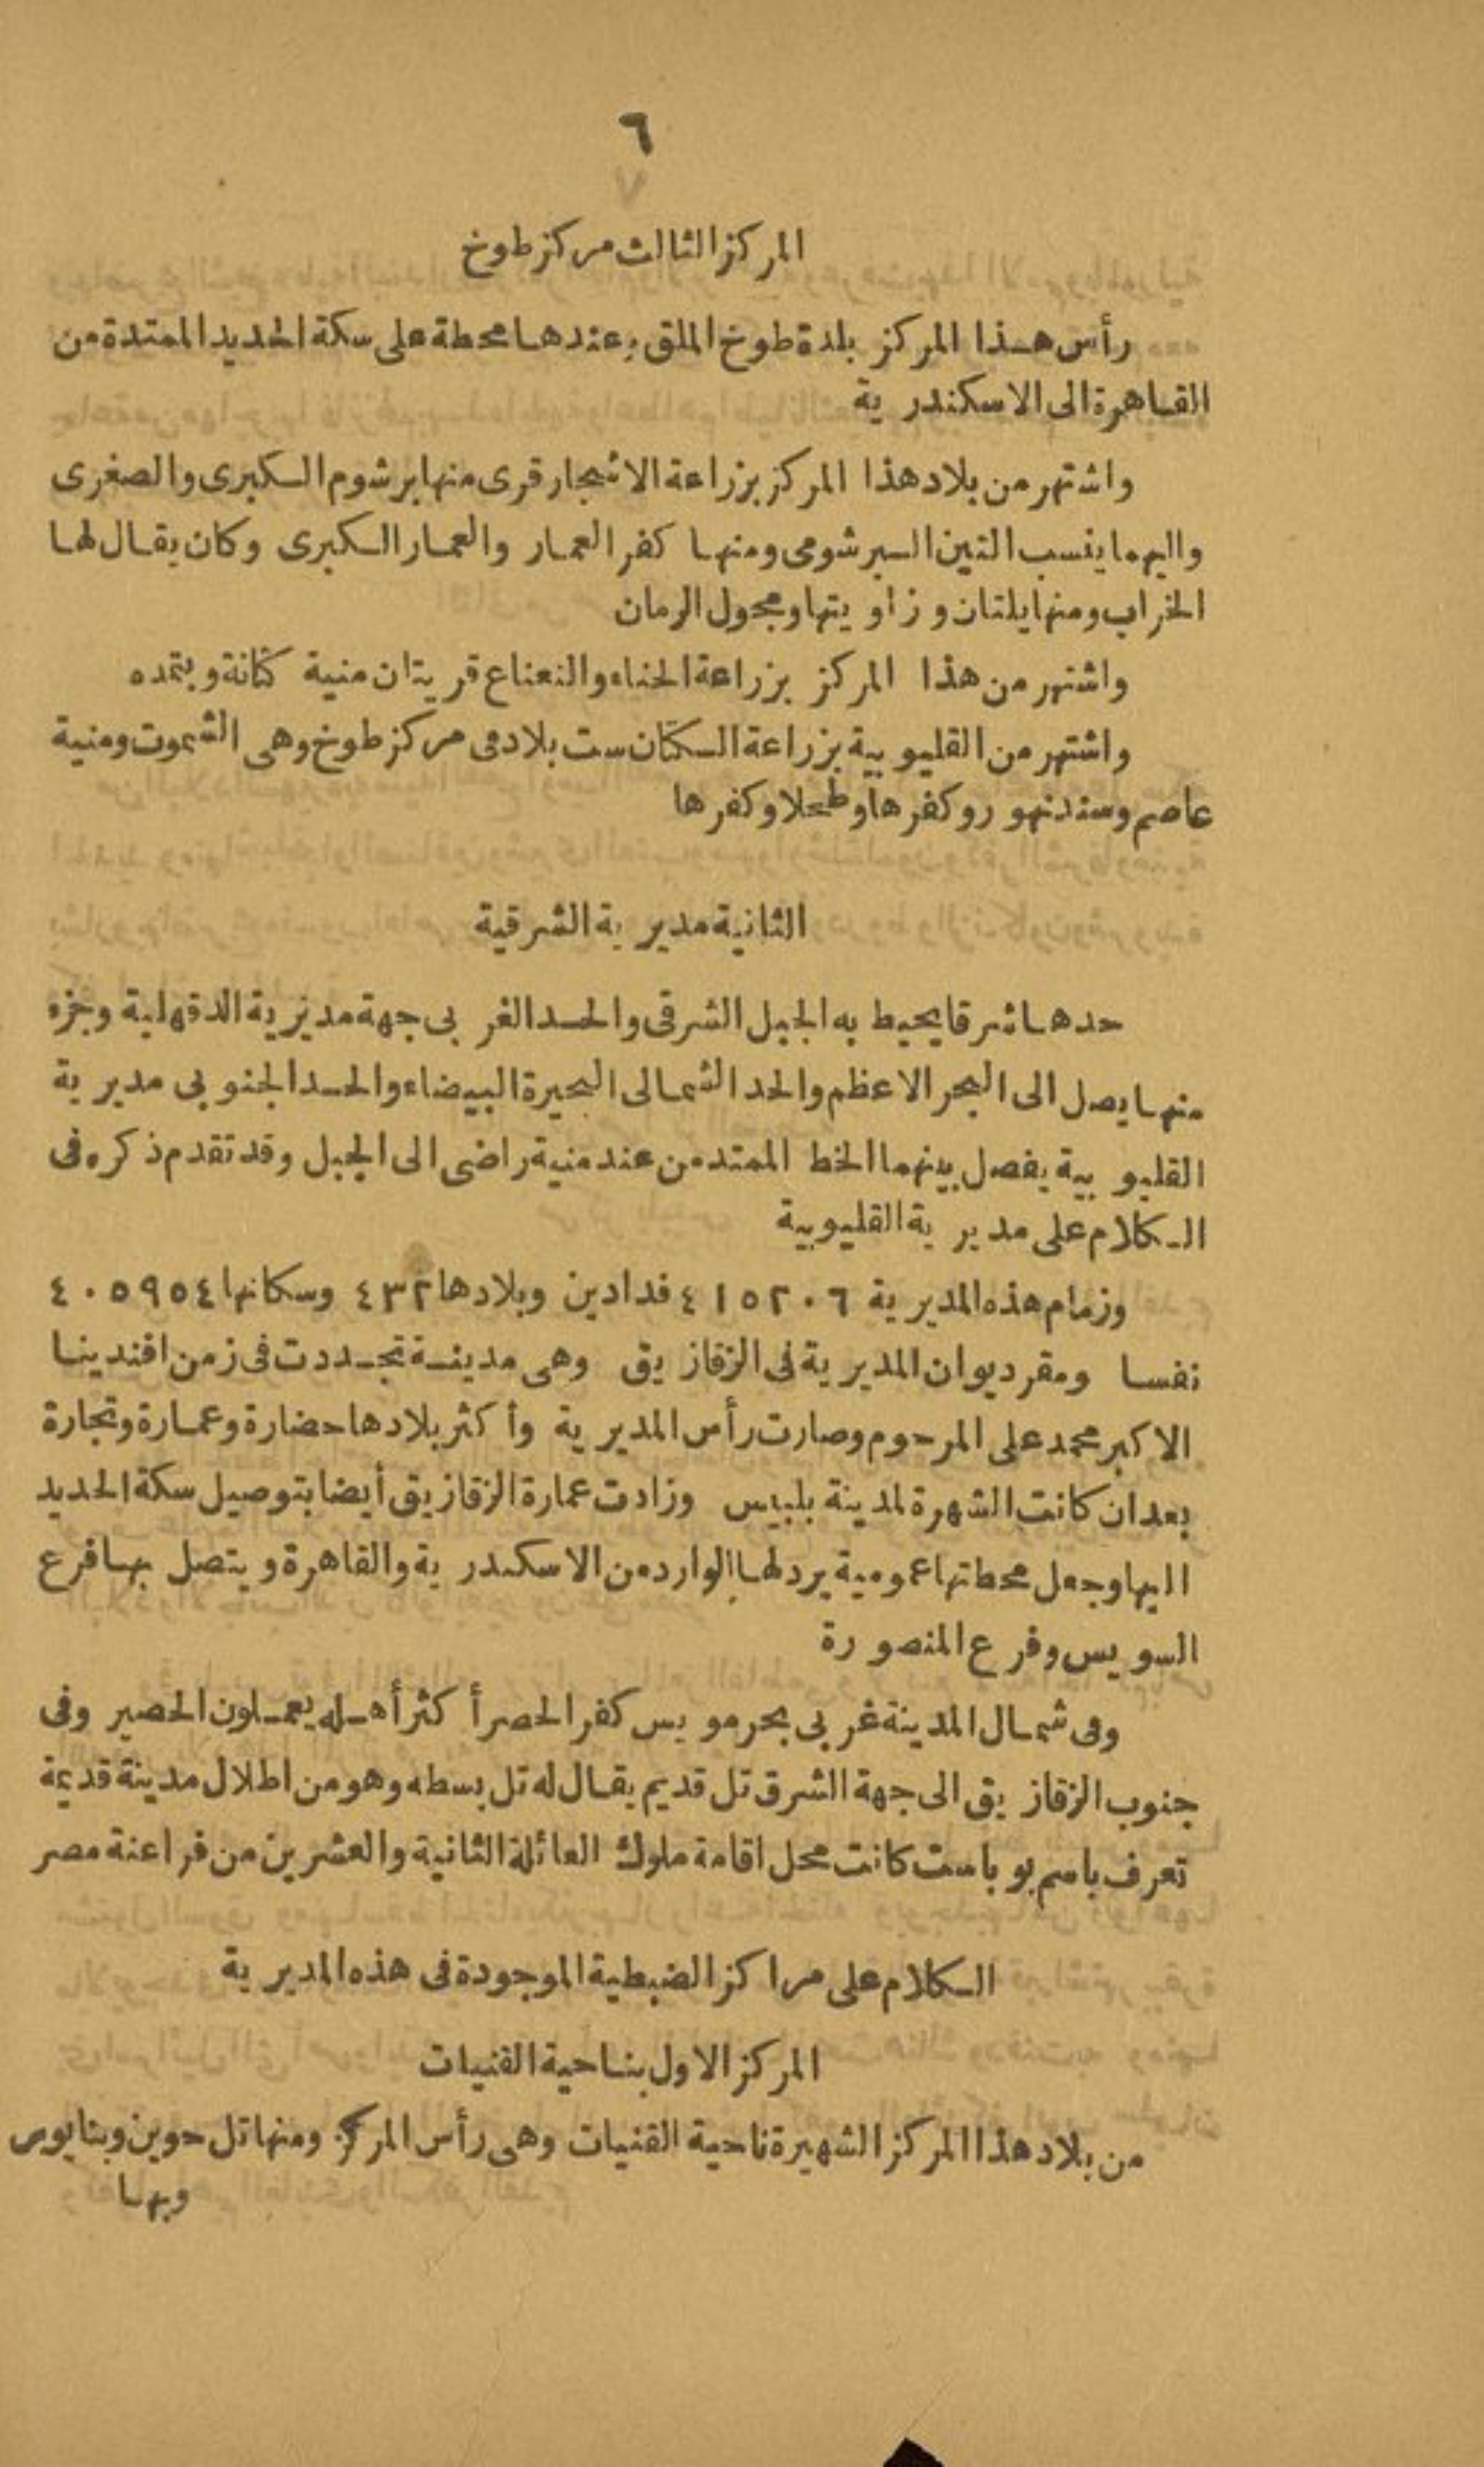 ٦
المركز الثالث مركز طوخ
رأس هذا المركز بلدة طوخ الملق وعندها محطة على سكة الحديد الممتدة من
القاهرة الى الاسكندرية
واشتهر من بلاد هذا المركز بزراعة الاشجار قرى منها برشوم الكبرى والصغرى
واليهما ينسب التين البرشومى ومنها كفر العمار والعمار الكبرى وكان يقال لها
الخراب ومنها يلتان وزاويتها ومجول الرمان
واشتهر من هذا المركز بزراعة الحناء والنعناع قريتان منية كنانة وبتمده
واشتهر من القليوبية بزراعة الكتان ست بلاد فى مركز طوخ وهى الشموت ومنية
عاصم وسندنهور وكفرها وطحلا وكفرها
الثانية مديرية الشرقية
حدها شرقا يحيط به الجبل الشرقى والحد الغربى جهة مديرية الدقهلية وجزء
منها يصل الى البحر الاعظم والحد الشمالى البحيرة البيضاء والحد الجنوبى مديرية
القليوبية يفصل بينهما الخط الممتد من عند منية راضى الى الجبل وقد تقدم ذكره فى
الكلام على مديرية القليوبية
وزمام هذه المديرية ٤١٥٢٠٦ فدادين وبلادها ٤٣٢ وسكانها ٤٠٥٩٥٤
نفسا ومقر ديوان المديرية فى الزقازيق وهى مدينة تجددت فى زمن افندينا
الاكبر محمد على المرحوم وصارت رأس المديرية وأكثر بلادها حضارة وعمارة وتجارة
بعد ان كانت الشهرة لمدينة بلبيس وزادت عمارة الزقازيق أيضا بتوصيل سكة الحديد
اليها وجعل محطتها عمومية يرد لها الوارد من الاسكندرية والقاهرة ويتصل بها فرع
السويس وفرع المنصورة
وفى شمال المدينة غربى بحر مويس كفر الحصر أكثر أهله يعملون الحصير وفى
جنوب الزقازيق الى جهة الشرق تل قديم يقال له تل بسطه وهو من اطلال مدينة قديمة
تعرف باسم بوباست كانت محل اقامة ملوك العائلة الثانية والعشرين من فراعنة مصر
الكلام على مراكز الضبطية الموجودة فى هذه المديرية
المركز الاول بناحية القنيات
من بلاد هذا المركز الشهيرة ناحية القنيات وهى رأس المركز ومنها تل حوين وبنايوس
وبها